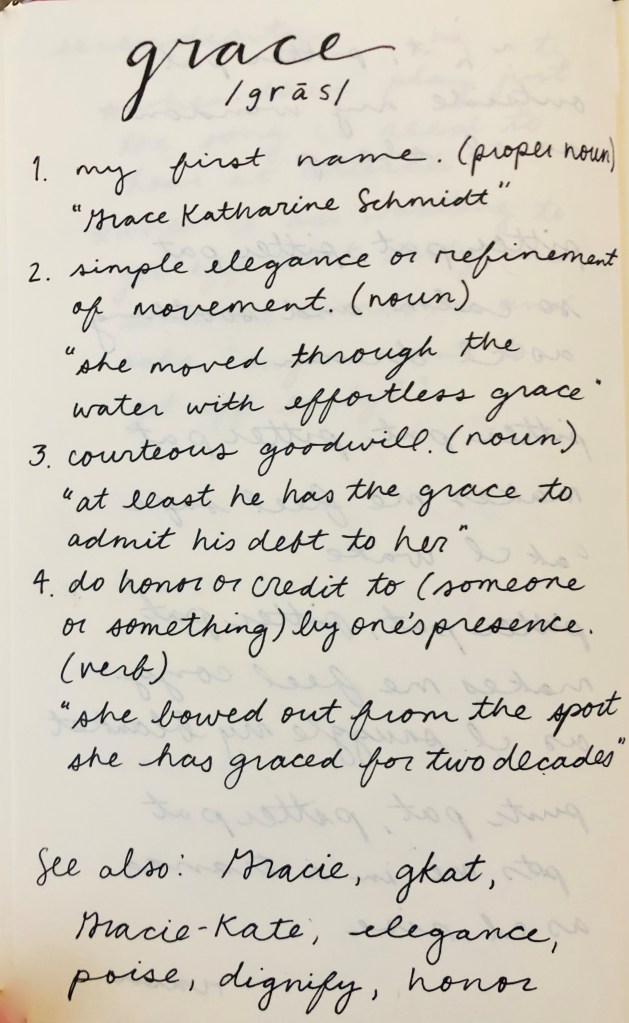 grace
/grās/
1. my first name. (proper noun)
"Grace Katharine Schmidt"
2. simple elegance or refinement
of movement. (noun)
"she moved through the
water with effortless grace"
3. courteous goodwill. (noun)
"at least he has the grace to
admit his debt to her"
4. do honor or credit to (someone
or something) by one's presence.
(verb)
"she bowed out from the sport
she has graced for two decades"
See also: Gracie, gkat,
Gracie-Kate, elegance,
poise, dignify, honor